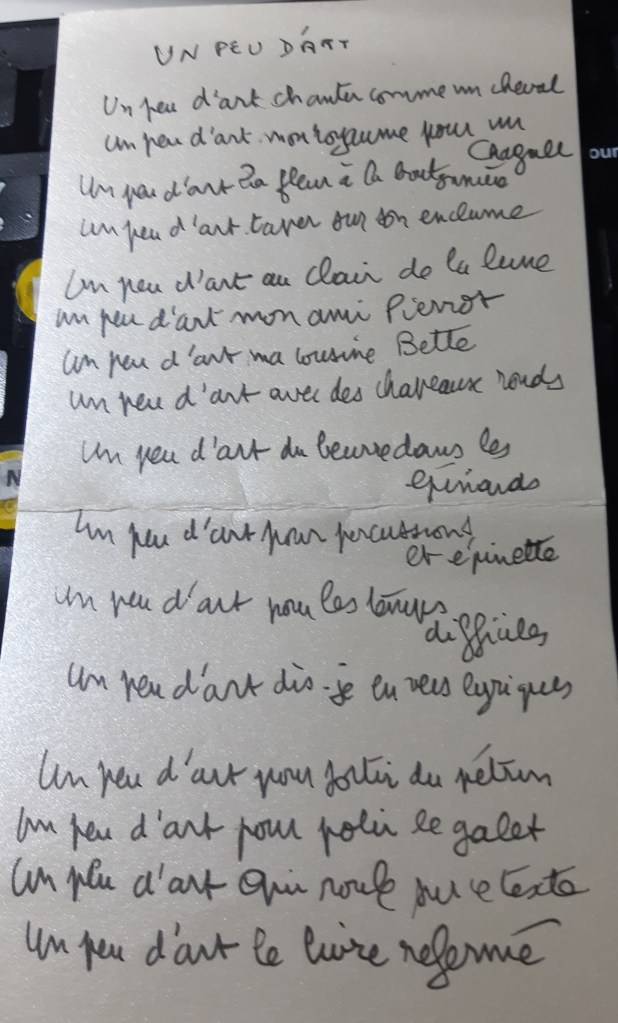 UN PEU D'ART
Un peu d'art chanter comme un cheval
un peu d'art mon royaume pour un
Chagall
our
Un peu d'art la fleur à la boutonnière
un peu d'art taper sur son enclume
Un peu d'art au clair de la lune
un peu d'art mon ami Pierrot
un peu d'art ma cousine Bette
un peu d'art avec des chapeaux ronds
Un peu d'art du beurre dans les
épinards
N
Un peu d'art pour percussions
et épinette
un peu d'art pour les temps
difficiles
Un peu d'art dis-je en vers lyriques
Un peu d'art pour sortir du pétrin
Un peu d'art pour polir le galet
Un peu d'art qui roule sur le texte
Un peu d'art le livre refermé